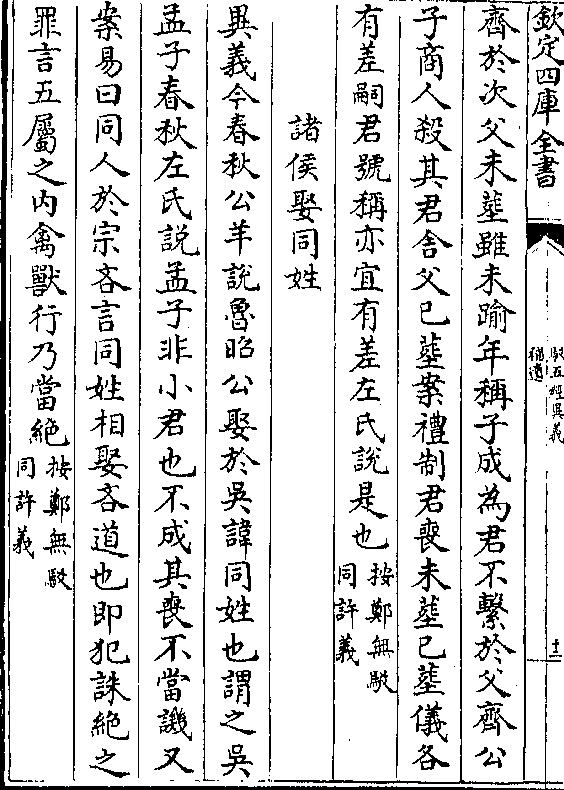 欽定四庫全書
駁五經異義
補遺
十二
齊於次父未塟雖未踰年稱子成為君不繫於父齊公
子商人殺其君舍父已塟案禮制君喪未塟已塟儀各
有差嗣君號稱亦宜有差左氏説是也按鄭無駁
同許義
諸侯娶同姓
異義今春秋公羊説魯昭公娶於吳諱同姓也謂之吳
孟子春秋左氏説孟子非小君也不成其喪不當譏又
案易曰同人於宗吝言同姓相娶吝道也即犯誅絶之
罪言五屬之內禽獸行乃當絶按鄭無駁
同許義